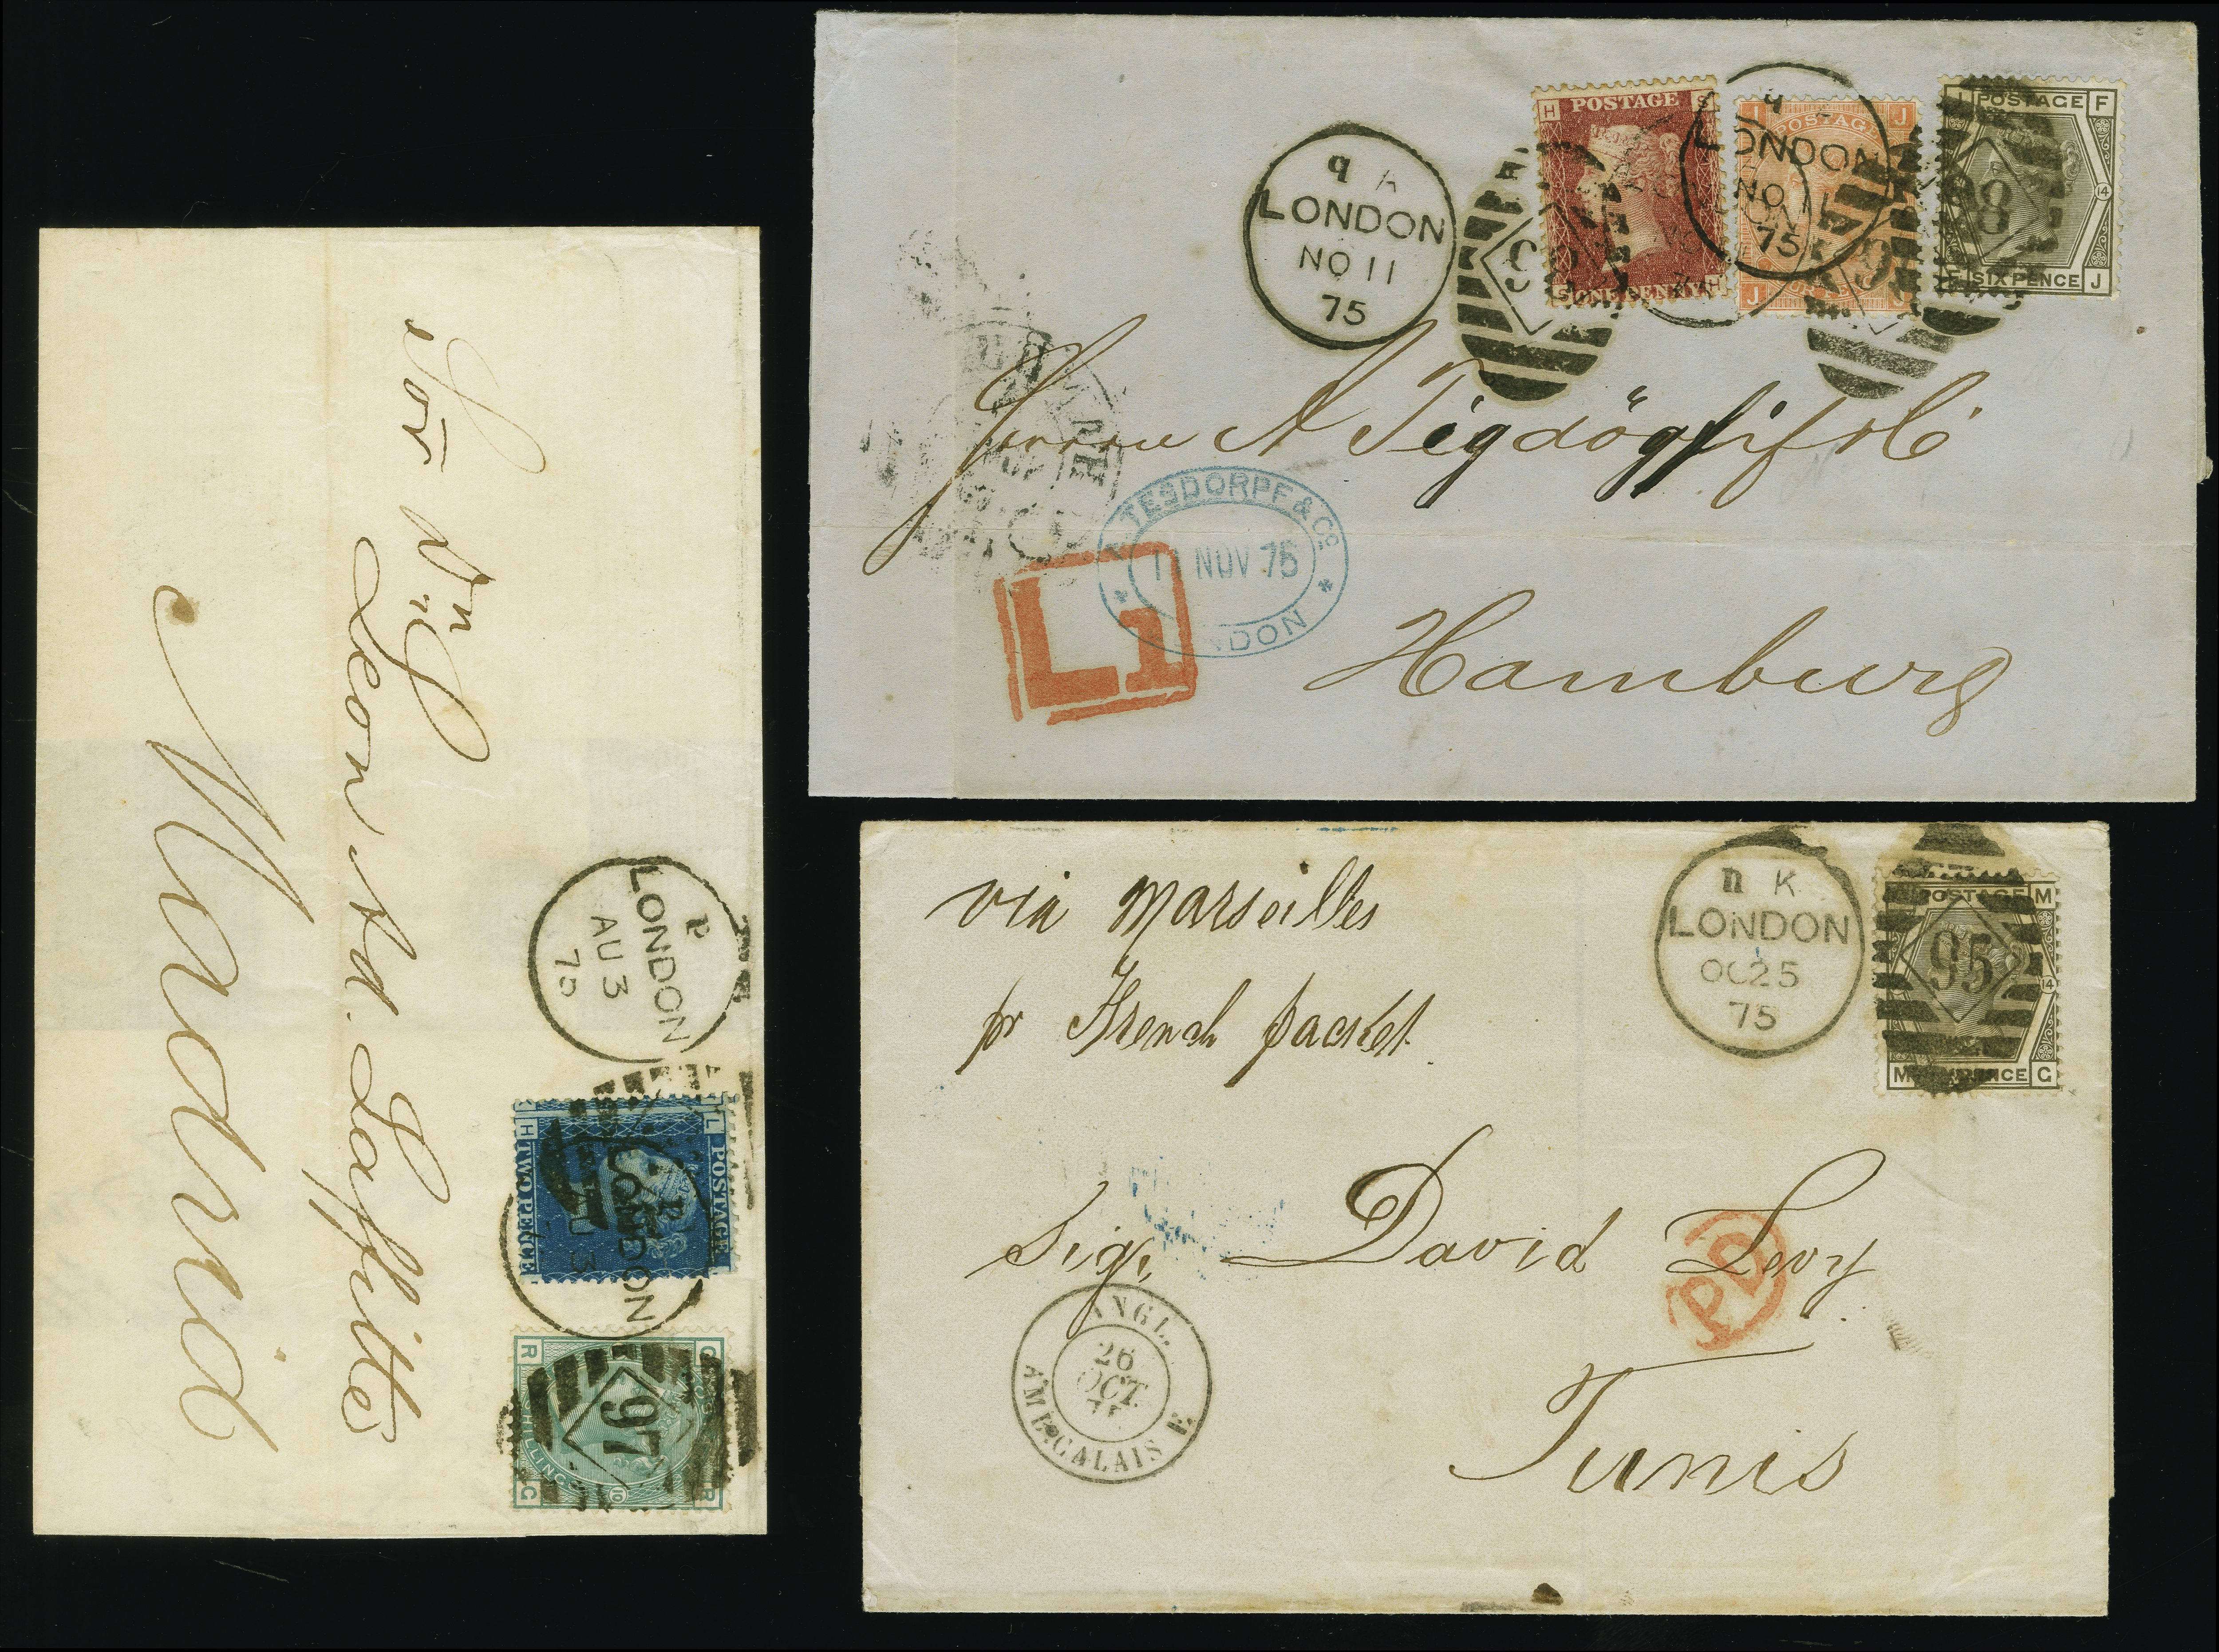 Sor Dn L
Leon Ad. Laffitte
Madrid
LONDON
AU 3
75
POSTAGE
TWO PENCE
L
H
LONDON
AU 3
97
R
C
R
C
SHILLING
q
LONDON
NO 11
75
H POSTAGE S
S ONE PENNY H
LONDON
NO 11
75
J POSTAGE J
J J
9
J POSTAGE F
98
14
F SIX PENCE J
Hamburg
TESDORPF & Co.
11 NOV 75
LONDON
L1
via Marseilles
pr French packet
n K
LONDON
OC 25
75
POSTAGE M
95
14
M SIX PENCE G
Sigr. David Levy
PD
ANGL.
26
OCT.
AMB. CALAIS E
Tunis